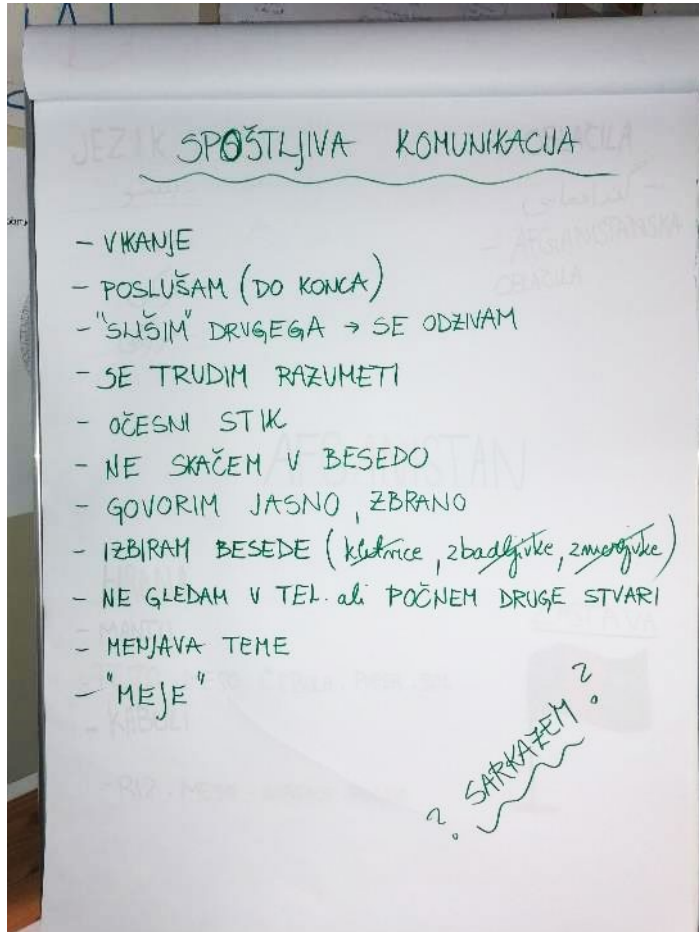 SPOŠTLJIVA KOMUNIKACIJA
- VIKANJE
- POSLUŠAM (DO KONCA)
- "SLIŠIM" DRUGEGA → SE ODZIVAM
- SE TRUDIM RAZUMETI
- OČESNI STIK
- NE SKAČEM V BESEDO
- GOVORIM JASNO, ZBRANO
- IZBIRAM BESEDE (kletvice, zbadljivke, zmerjivke)
- NE GLEDAM V TEL. ali POČNEM DRUGE STVARI
- MENJAVA TEME
- "MEJE"
? SARKAZEM ?
JEZIK
AFGANISTANSKA
AFGANISTAN